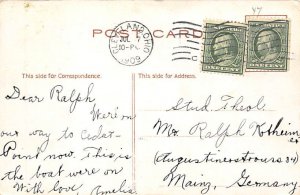 47
POST CARD
CLEVELAND, OHIO
JUL
10-PM
1909
ONE CENT
ONE CENT
This side for Correspondence.
This side for Address.
Dear Ralph
We're on
our way to Cedar-
Point now. This is
the boat were on
With love, Amelia
Stud. Theol.
Mr. Ralph
Augustinerstrasse 34
Mainz, Germany